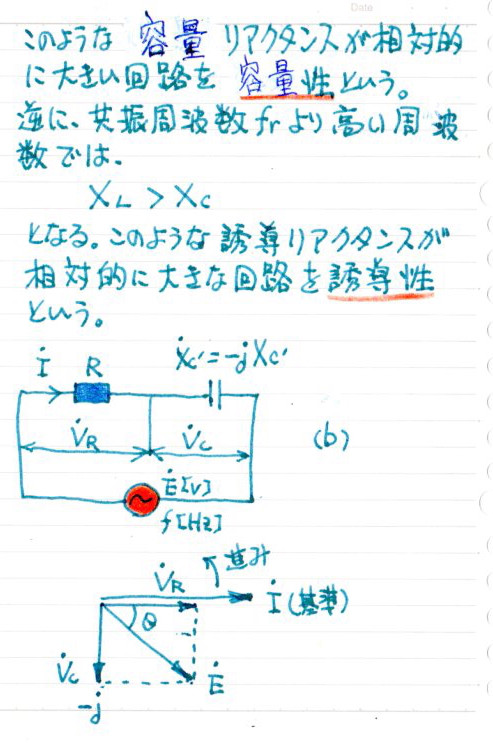 Data
このような 容量 リアクタンスが相対的
に大きい回路を 容量性という。
逆に、共振周波数frより高い周波
数では、
XL > Xc
となる。このような誘導リアクタンスが
相対的に大きな回路を誘導性
という。
İ R Ẋc'=-jXc'
V̇R V̇c (b)
Ė[V]
f[Hz]
進み
V̇R İ(基準)
θ
V̇c Ė
-j